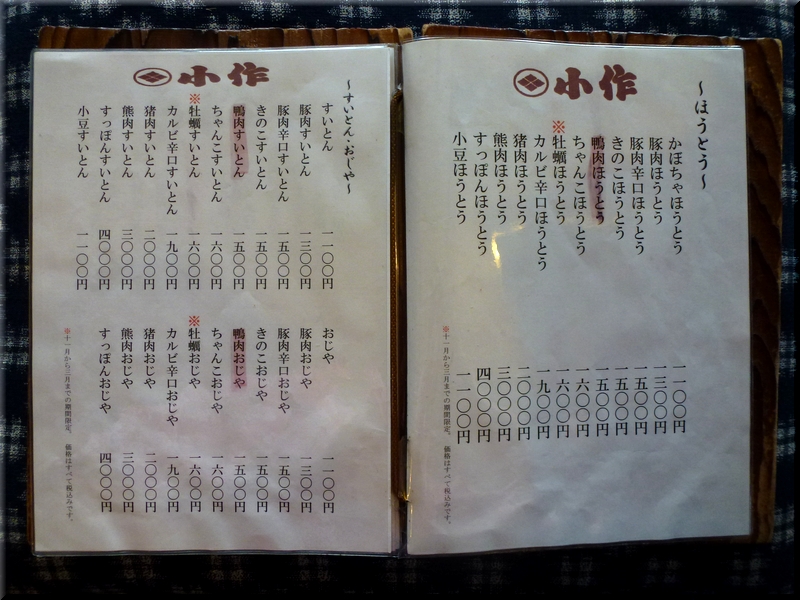 小作
～ほうとう～
かぼちゃほうとう 一一〇〇円
豚肉ほうとう 一三〇〇円
豚肉辛口ほうとう 一五〇〇円
きのこほうとう 一五〇〇円
鴨肉ほうとう 一五〇〇円
ちゃんこほうとう 一六〇〇円
※牡蠣ほうとう 一六〇〇円
カルビ辛口ほうとう 一九〇〇円
猪肉ほうとう 二〇〇〇円
熊肉ほうとう 三〇〇〇円
すっぽんほうとう 四〇〇〇円
小豆ほうとう 一一〇〇円
※十一月から三月までの期間限定。 価格はすべて税込みです。
小作
～すいとん・おじや～
すいとん 一一〇〇円
豚肉すいとん 一三〇〇円
豚肉辛口すいとん 一五〇〇円
きのこすいとん 一五〇〇円
鴨肉すいとん 一五〇〇円
ちゃんこすいとん 一六〇〇円
※牡蠣すいとん 一六〇〇円
カルビ辛口すいとん 一九〇〇円
猪肉すいとん 二〇〇〇円
熊肉すいとん 三〇〇〇円
すっぽんすいとん 四〇〇〇円
小豆すいとん 一一〇〇円
おじや 一一〇〇円
豚肉おじや 一三〇〇円
豚肉辛口おじや 一五〇〇円
きのこおじや 一五〇〇円
鴨肉おじや 一五〇〇円
ちゃんこおじや 一六〇〇円
※牡蠣おじや 一六〇〇円
カルビ辛口おじや 一九〇〇円
猪肉おじや 二〇〇〇円
熊肉おじや 三〇〇〇円
すっぽんおじや 四〇〇〇円
※十一月から三月までの期間限定。 価格はすべて税込みです。